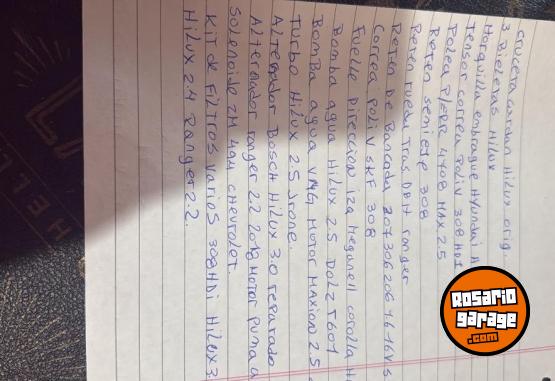 crucera cardan Hilux orig.
3 Bieletas Hilux
Horquilla embrague Hyundai H
Tensor correa Poliv 308 HDI
Polea PEPR 4708 MAX 2.5
Reten semieje 308
Reten rueda Tras. DBH ranger
Reten De Bancada 207 306 206 1.6 16V S
Correa Poli V SKF 308
Fuelle Direccion izq Megane II corolla H
Bomba agua Hilux 2.5 Dolz T601
BomBa agua VMG Motor Maxion 2.5
Turbo Hilux 2.5 Jrone
Alternador Bosch Hilux 3.0 reparado
Alternador ranger 2.2 2018 Motor Puma
Solenoide ZM 494 chevrolet
KIT de FILTROS VARIOS 308 HDi Hilux 3.
Hilux 2.4 Ranger 2.2.
Rosario
garage
.com
HELL